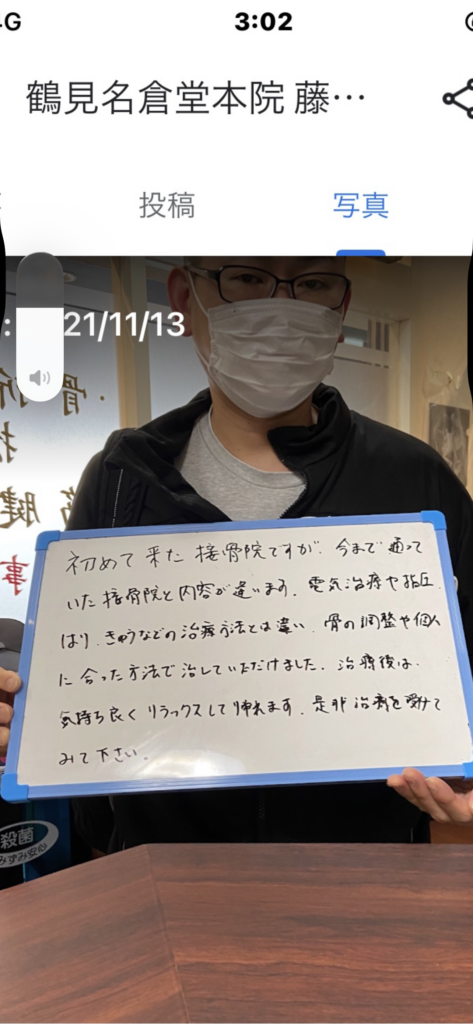 4G
3:02
鶴見名倉堂本院 藤…
投稿
写真
21/11/13
骨
腱
事
初めて来た接骨院ですが、今まで通って
いた接骨院と内容が違います。電気治療や指圧
はり、きゅうなどの治療方法とは違い、骨の調整や個人
に合った方法で治していただけました。治療後は、
気持ち良くリラックスして帰れます。是非治療を受けて
みて下さい。
殺菌